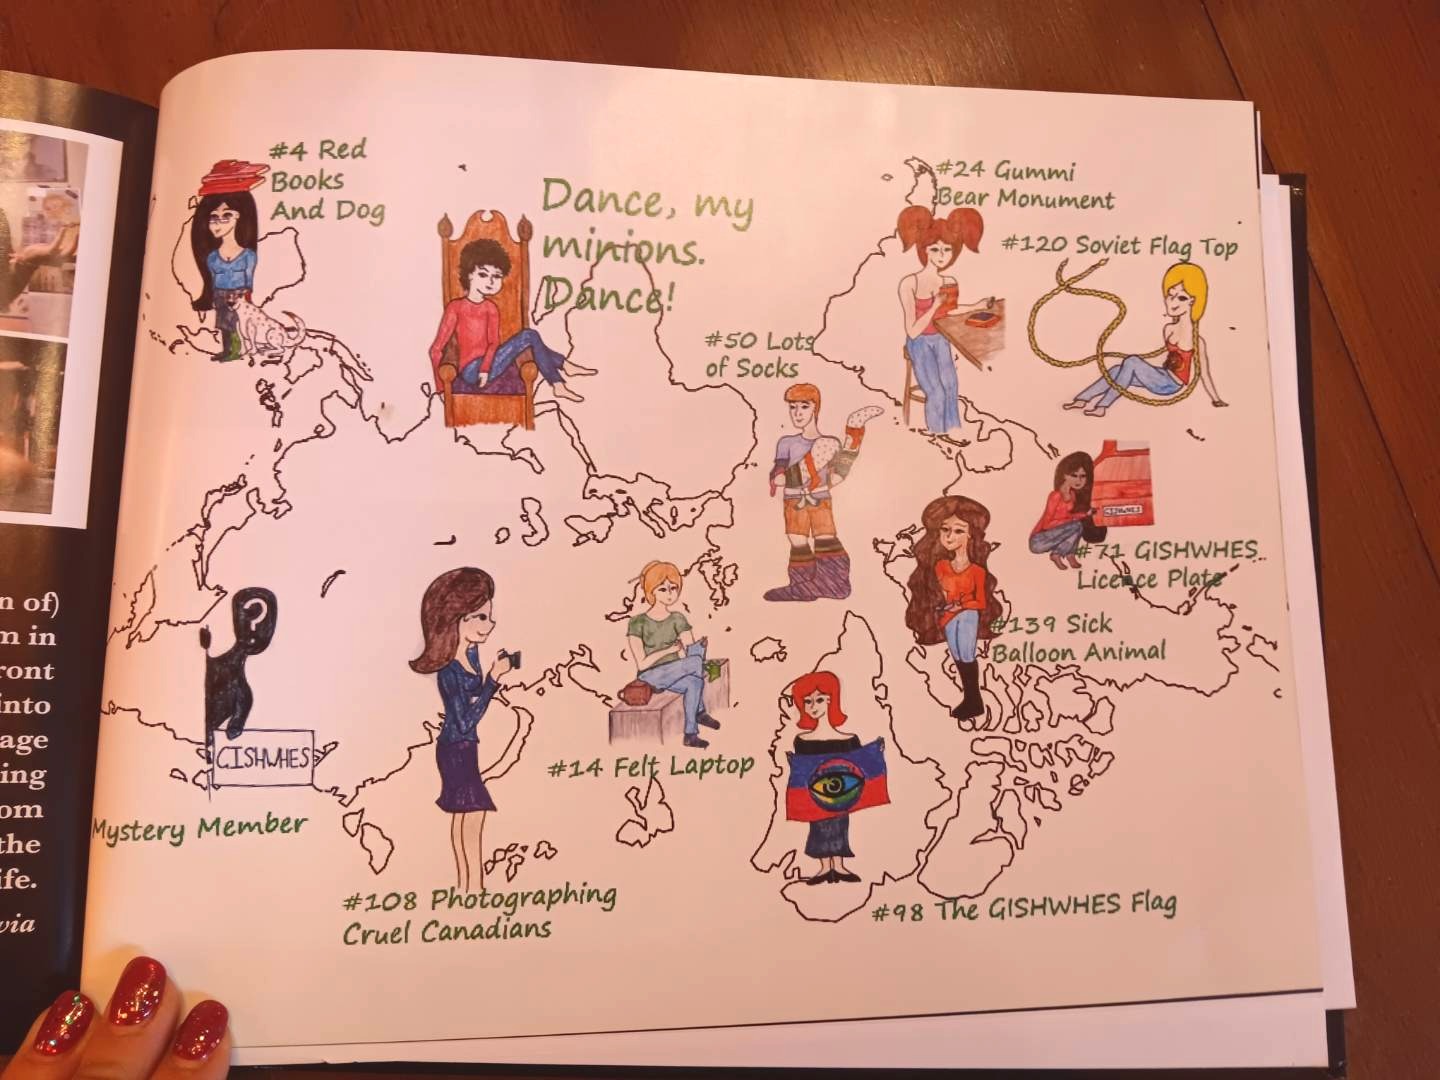 #4 Red
Books
And Dog
Dance, my
minions.
Dance!
#24 Gummi
Bear Monument
#120 Soviet Flag Top
#50 Lots
of Socks
GISHWHES
#71 GISHWHES
Licence Plate
#139 Sick
Balloon Animal
?
GISHWHES
Mystery Member
#14 Felt Laptop
#108 Photographing
Cruel Canadians
#98 The GISHWHES Flag
n of)
m in
ront
into
age
ing
om
the
ife.
via